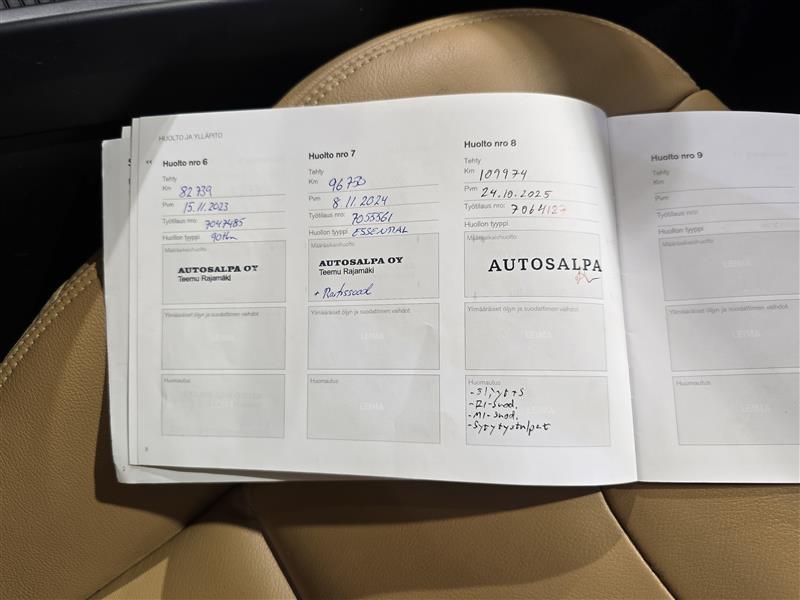 HUOLTO JA YLLÄPITO
Huolto nro 6
Tehty
Km 82 739
Pvm 15.11.2023
Työtilaus nro: 7047485
Huollon tyyppi
Määräaikaishuolto
AUTOSALPA OY
Teemu Rajamäki
Ylimääräiset öljyn ja suodattimen vaihdot
Huomautus
8
Huolto nro 7
Tehty
Km 96 750
Pvm 8.11.2024
Työtilaus nro: 7055561
Huollon tyyppi: ESSENTIAL
Määräaikaishuolto
AUTOSALPA OY
Teemu Rajamäki
+ Raitissuod
Ylimääräiset öljyn ja suodattimen vaihdot
LEIMA
Huomautus
LEIMA
Huolto nro 8
Tehty
Km 109974
Pvm 24.10.2025
Työtilaus nro: 7064127
Huollon tyyppi:
Määräaikaishuolto
AUTOSALPA
Ylimääräiset öljyn ja suodattimen vaihdot
LEIMA
Huomautus
- RI-suod.
- MI-suod.
Huolto nro 9
Tehty
Km
Pvm
Työtilaus nro:
Huollon tyyppi:
Määräaikaishuolto
LEIMA
Ylimääräiset öljyn ja suodattimen vaihdot
LEIMA
Huomautus
LEIMA